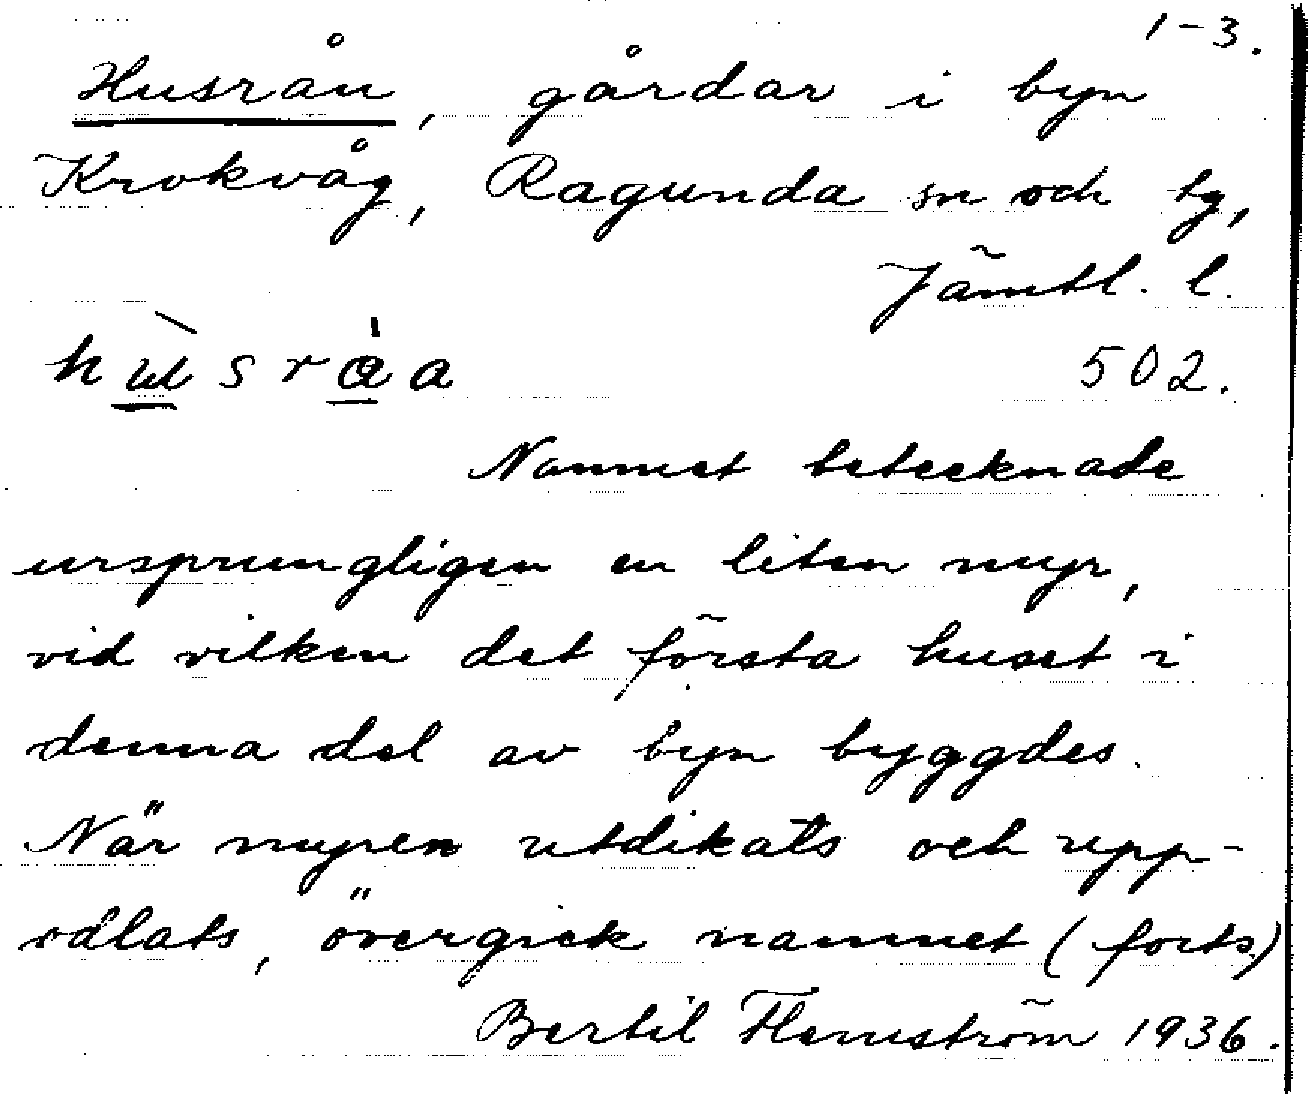 1-3.
Husrån, gårdar i byn
Krokvåg, Ragunda sn och tg,
Jämtl. l.
502.
Namnet betecknade
ursprungligen en liten myr,
vid vilken det första huset i
denna del av byn byggdes.
När myren utdikats och upp-
odlats, övergick namnet (forts)
Bertil Flemström 1936.